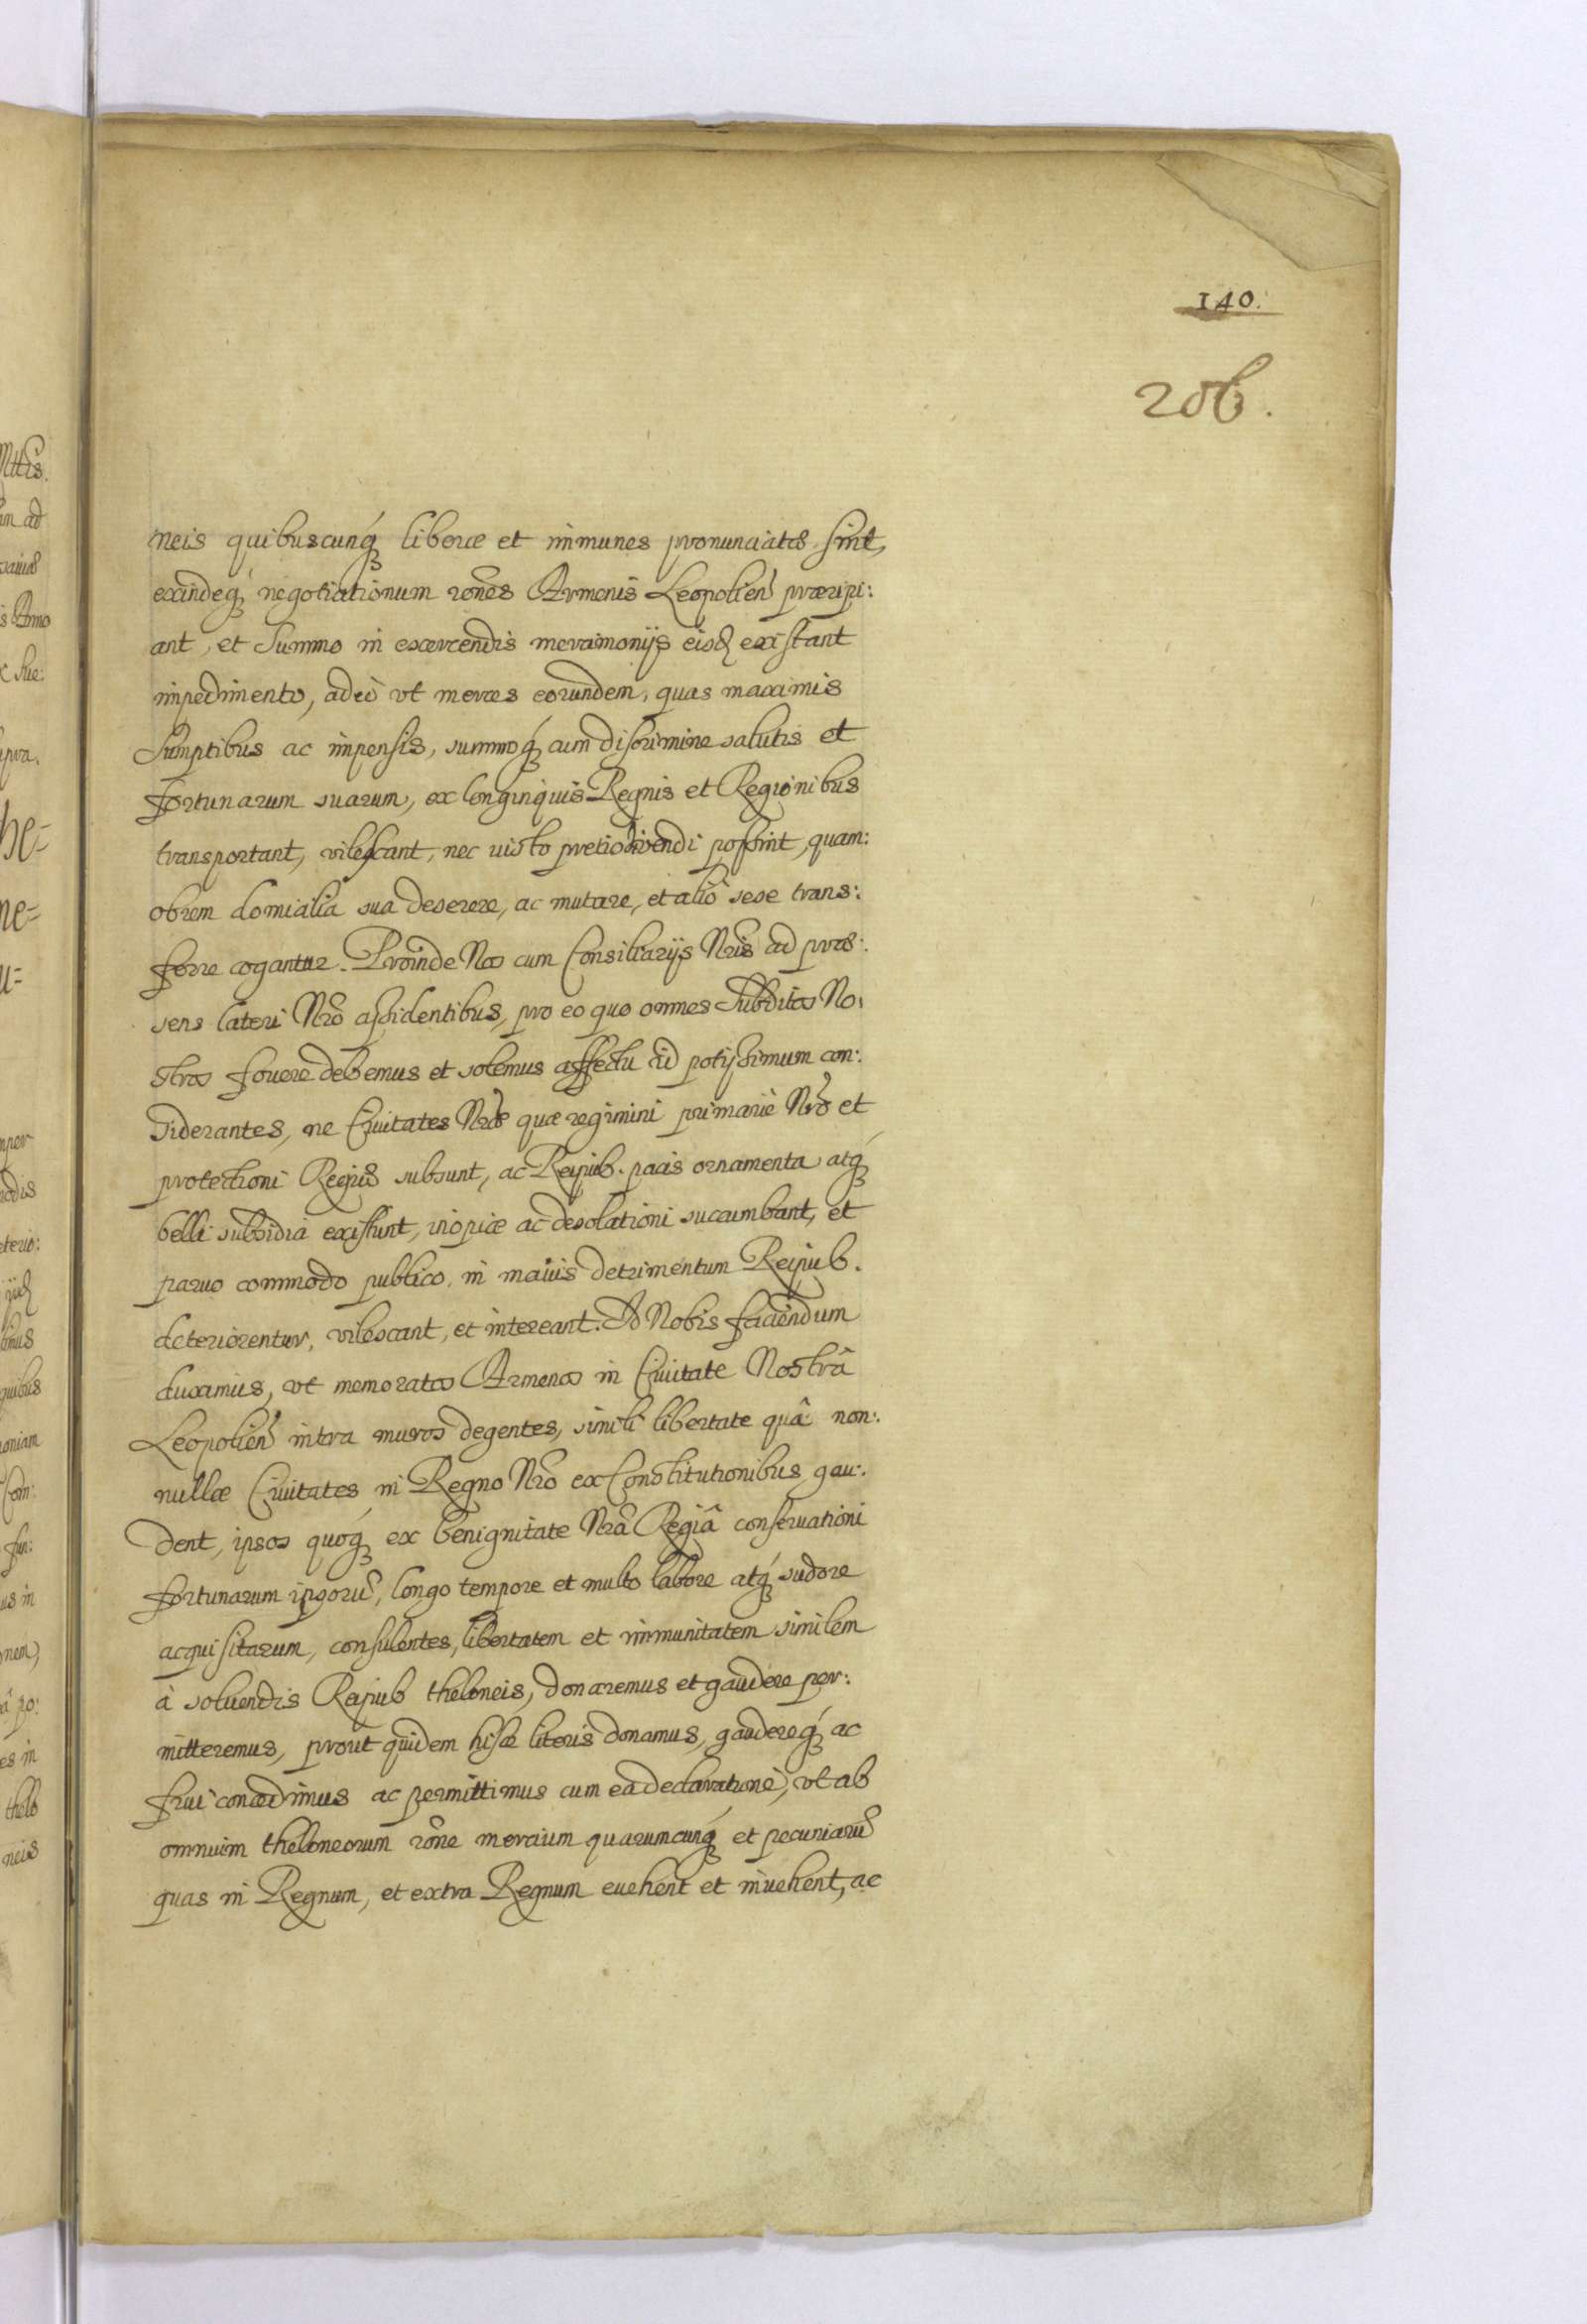 140.
206.
neis quibuscunq́ liberæ et immunes pronunciatæ sint,
exindeq́ negotiationum rones Armenis Leopolien præripi:
ant, et summo in exercendis mercimonijs eisd existant
impedimento, adeò vt merces eorundem, quas maximis
sumptibus ac impensis, summoq́ cum discrimine salutis et
fortunarum suarum, ex longinquis Regnis et Regionibus
transportant, vilescant, nec iusto pretio divendi possint, quam:
obrem domicilia sua deserere, ac mutare, et aliò sese trans:
ferre cogantur. Proinde Nos cum Consiliarijs Nris ad præ:
sens lateri Nro assidentibus, pro eo quo omnes Subditos No:
stros fouere debemus et solemus affectu id potissimum con:
siderantes, ne Ciuitates Nræ quæ regimini primariè Nro et
protectioni Regiæ subsunt, ac Reipub. pacis ornamenta atq́
belli subsidia existunt, inopiæ ac desolationi succumbant, et
paruo commodo publico, in maius detrimentum Reipub.
deteriorentur, vilescant, et intereant. Id Nobis faciendum
duximus, vt memoratos Armenos in Ciuitate Nostrâ
Leopolien intra muros degentes, simili libertate quâ non:
nullæ Ciuitates in Regno Nro ex Constitutionibus gau:
dent, ipsos quoq́ ex benignitate Nrâ Regiâ conseruationi
fortunarum ipsorũ, longo tempore et multo labore atq́ sudore
acquisitarum, consulentes, libertatem et immunitatem similem
à soluendis Reipub theloneis, donaremus et gaudere per:
mitteremus, prout quidem hisce literis donamus, gaudereq́ ac
frui concedimus ac permittimus cum ea declaratione, vt ab
omnium theloneorum rone mercium quarumcunq́ et pecuniarũ
quas in Regnum, et extra Regnum euehent et inuehent, ac